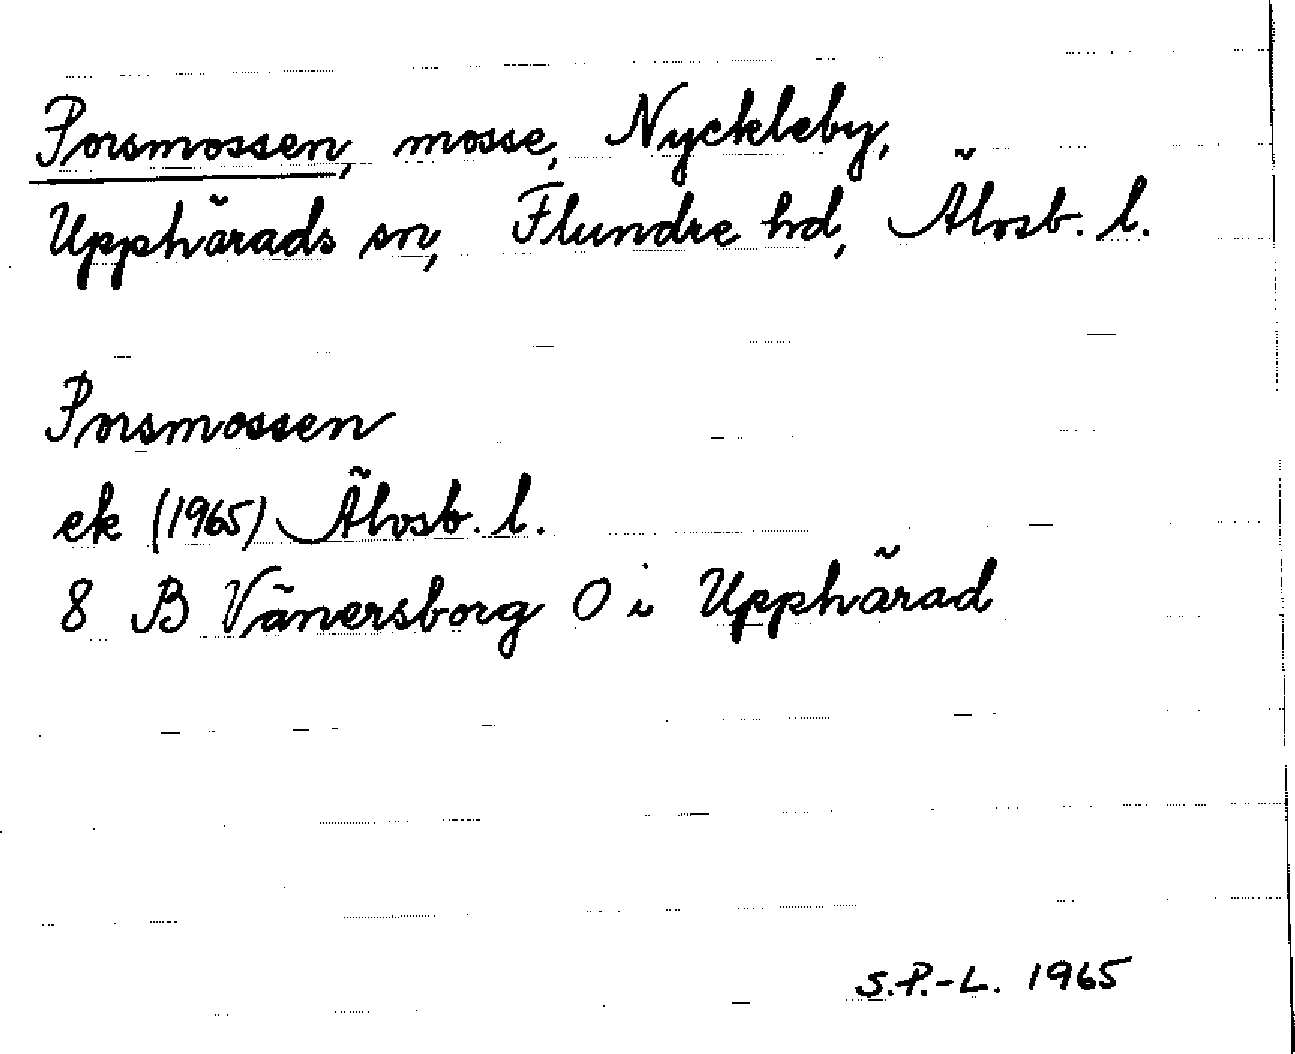 Porsmossen, mosse, Nyckleby,
Upphärads sn, Flundre hd, Älvsb. l.
Porsmossen
ek (1965) Älvsb. l.
8 B Vänersborg O i Upphärad
S.P.-L. 1965